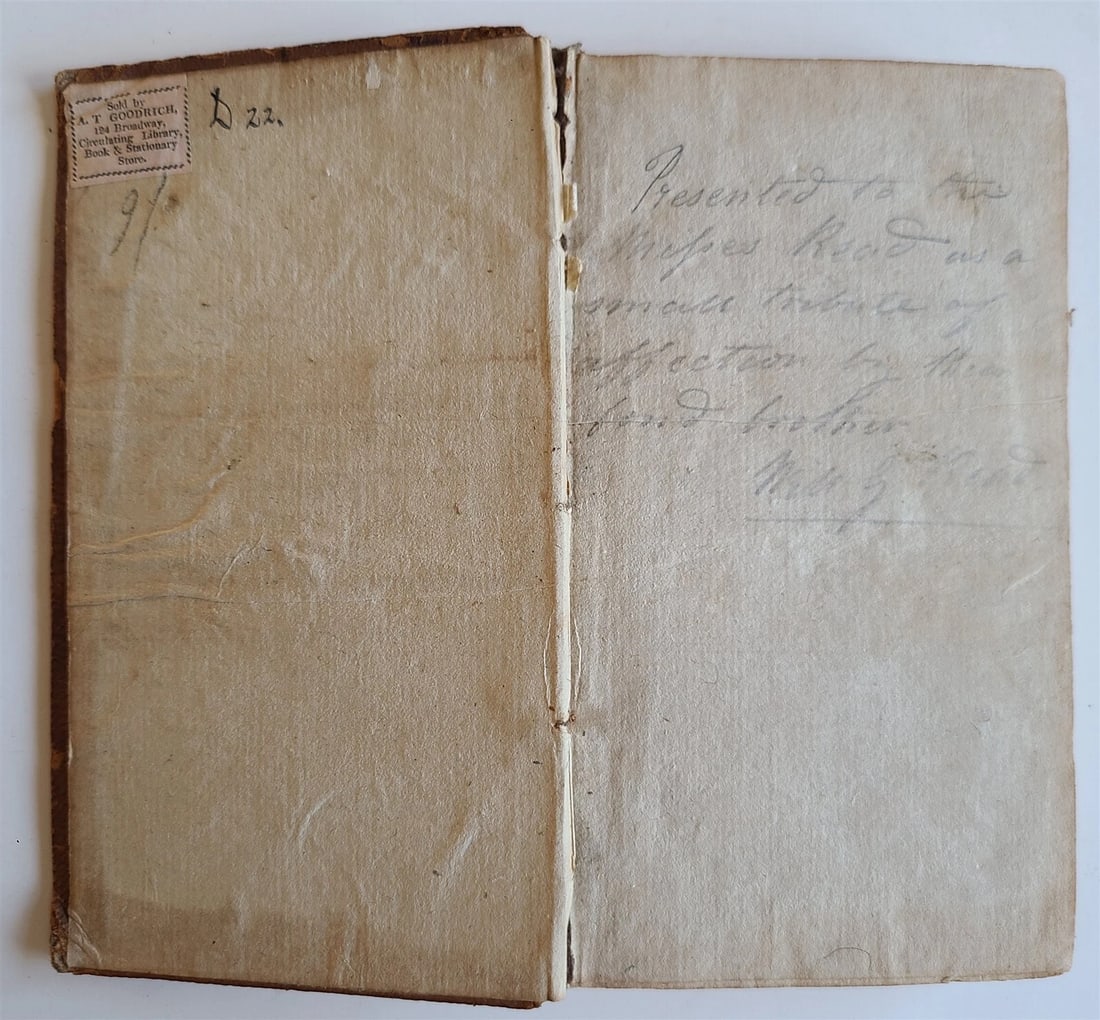 Sold by
A. T GOODRICH,
124 Broadway,
Circulating Library,
Book & Stationary
Store.
D 22.
Presented to the
Miſses Read as a
small tribute of
affection by their
fond brother
Will G Read